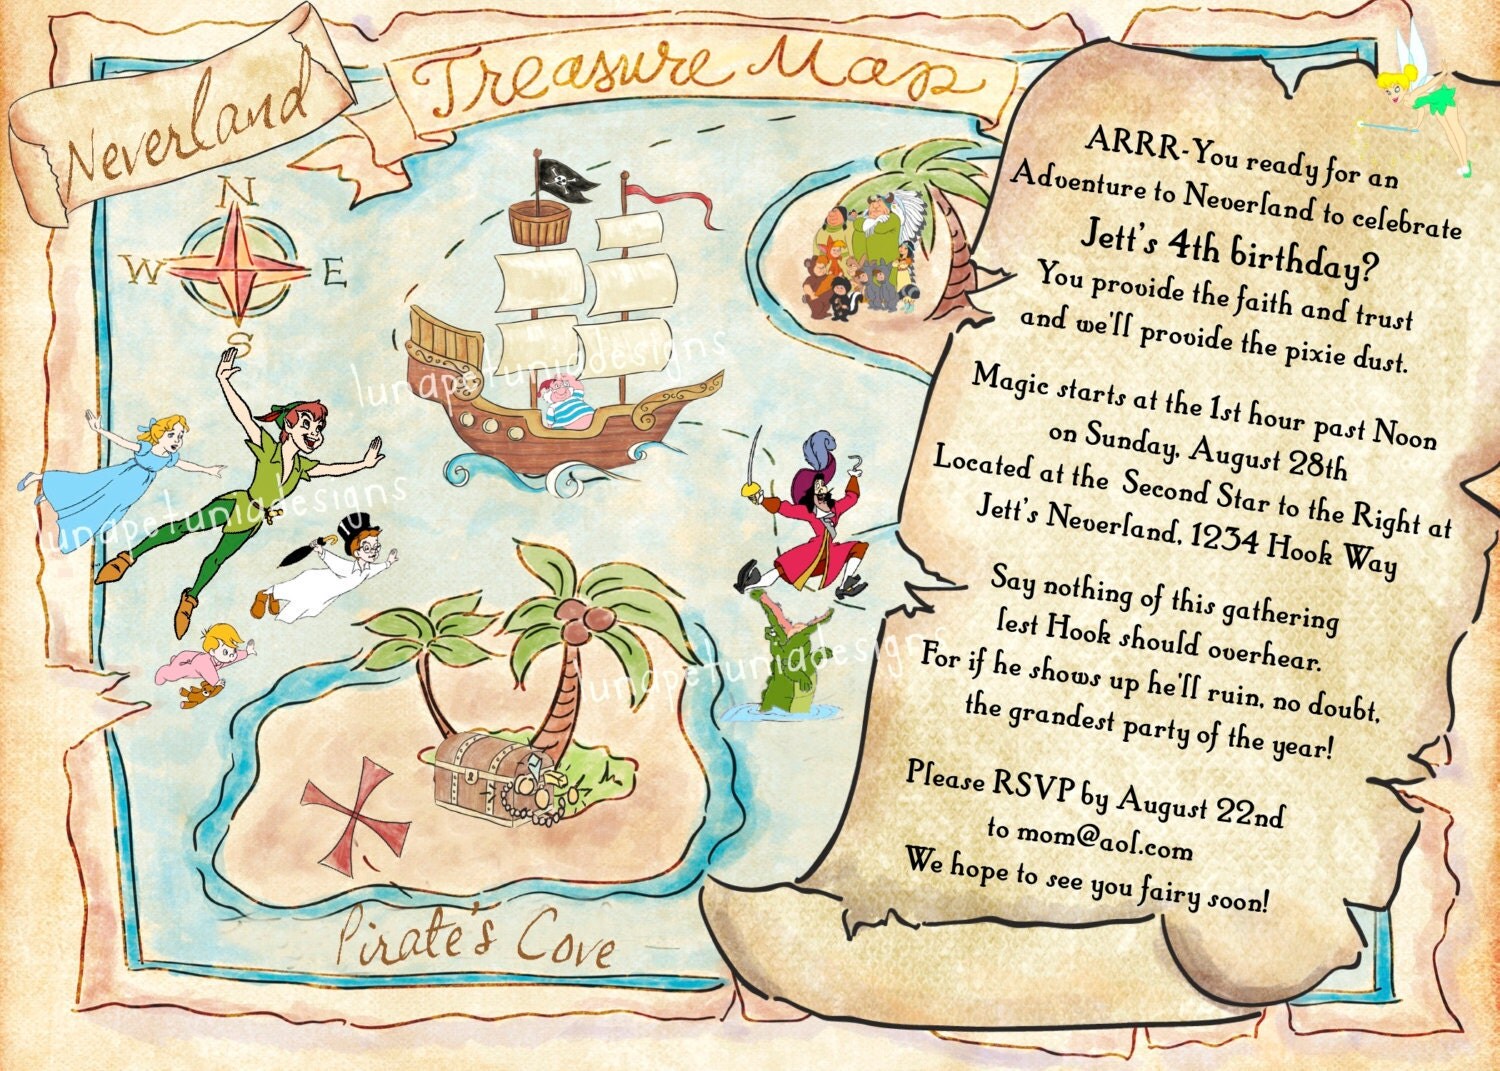 Neverland
Treasure Map
N
W E
S
lunapetuniadesigns
lunapetuniadesigns
lunapetuniadesigns
Pirate's Cove
ARRR-You ready for an
Adventure to Neverland to celebrate
Jett's 4th birthday?
You provide the faith and trust
and we'll provide the pixie dust.
Magic starts at the 1st hour past Noon
on Sunday, August 28th
Located at the Second Star to the Right at
Jett's Neverland, 1234 Hook Way
Say nothing of this gathering
lest Hook should overhear.
For if he shows up he'll ruin, no doubt,
the grandest party of the year!
Please RSVP by August 22nd
to mom@aol.com
We hope to see you fairy soon!